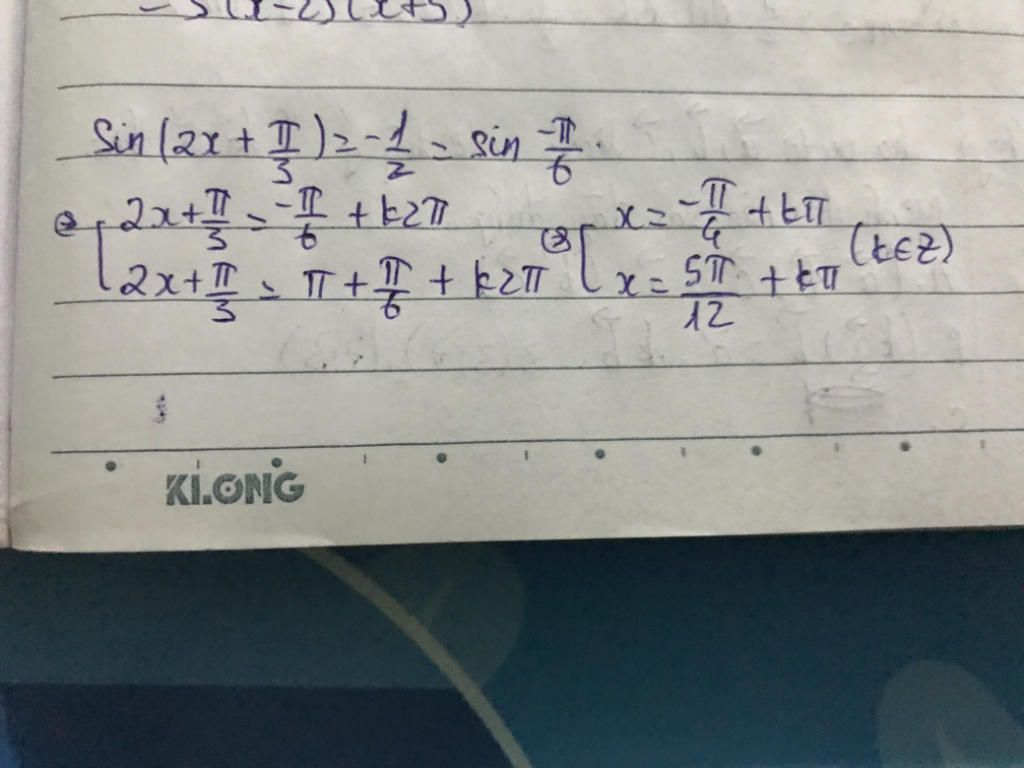 -3(x-2)(x+5)
Sin(2x + π/3) = -1/2 = sin -π/6.
⇔ [ 2x + π/3 = -π/6 + k2π ⇔ [ x = -π/4 + kπ
2x + π/3 = π + π/6 + k2π x = 5π/12 + kπ (k∈Z)
KLONG